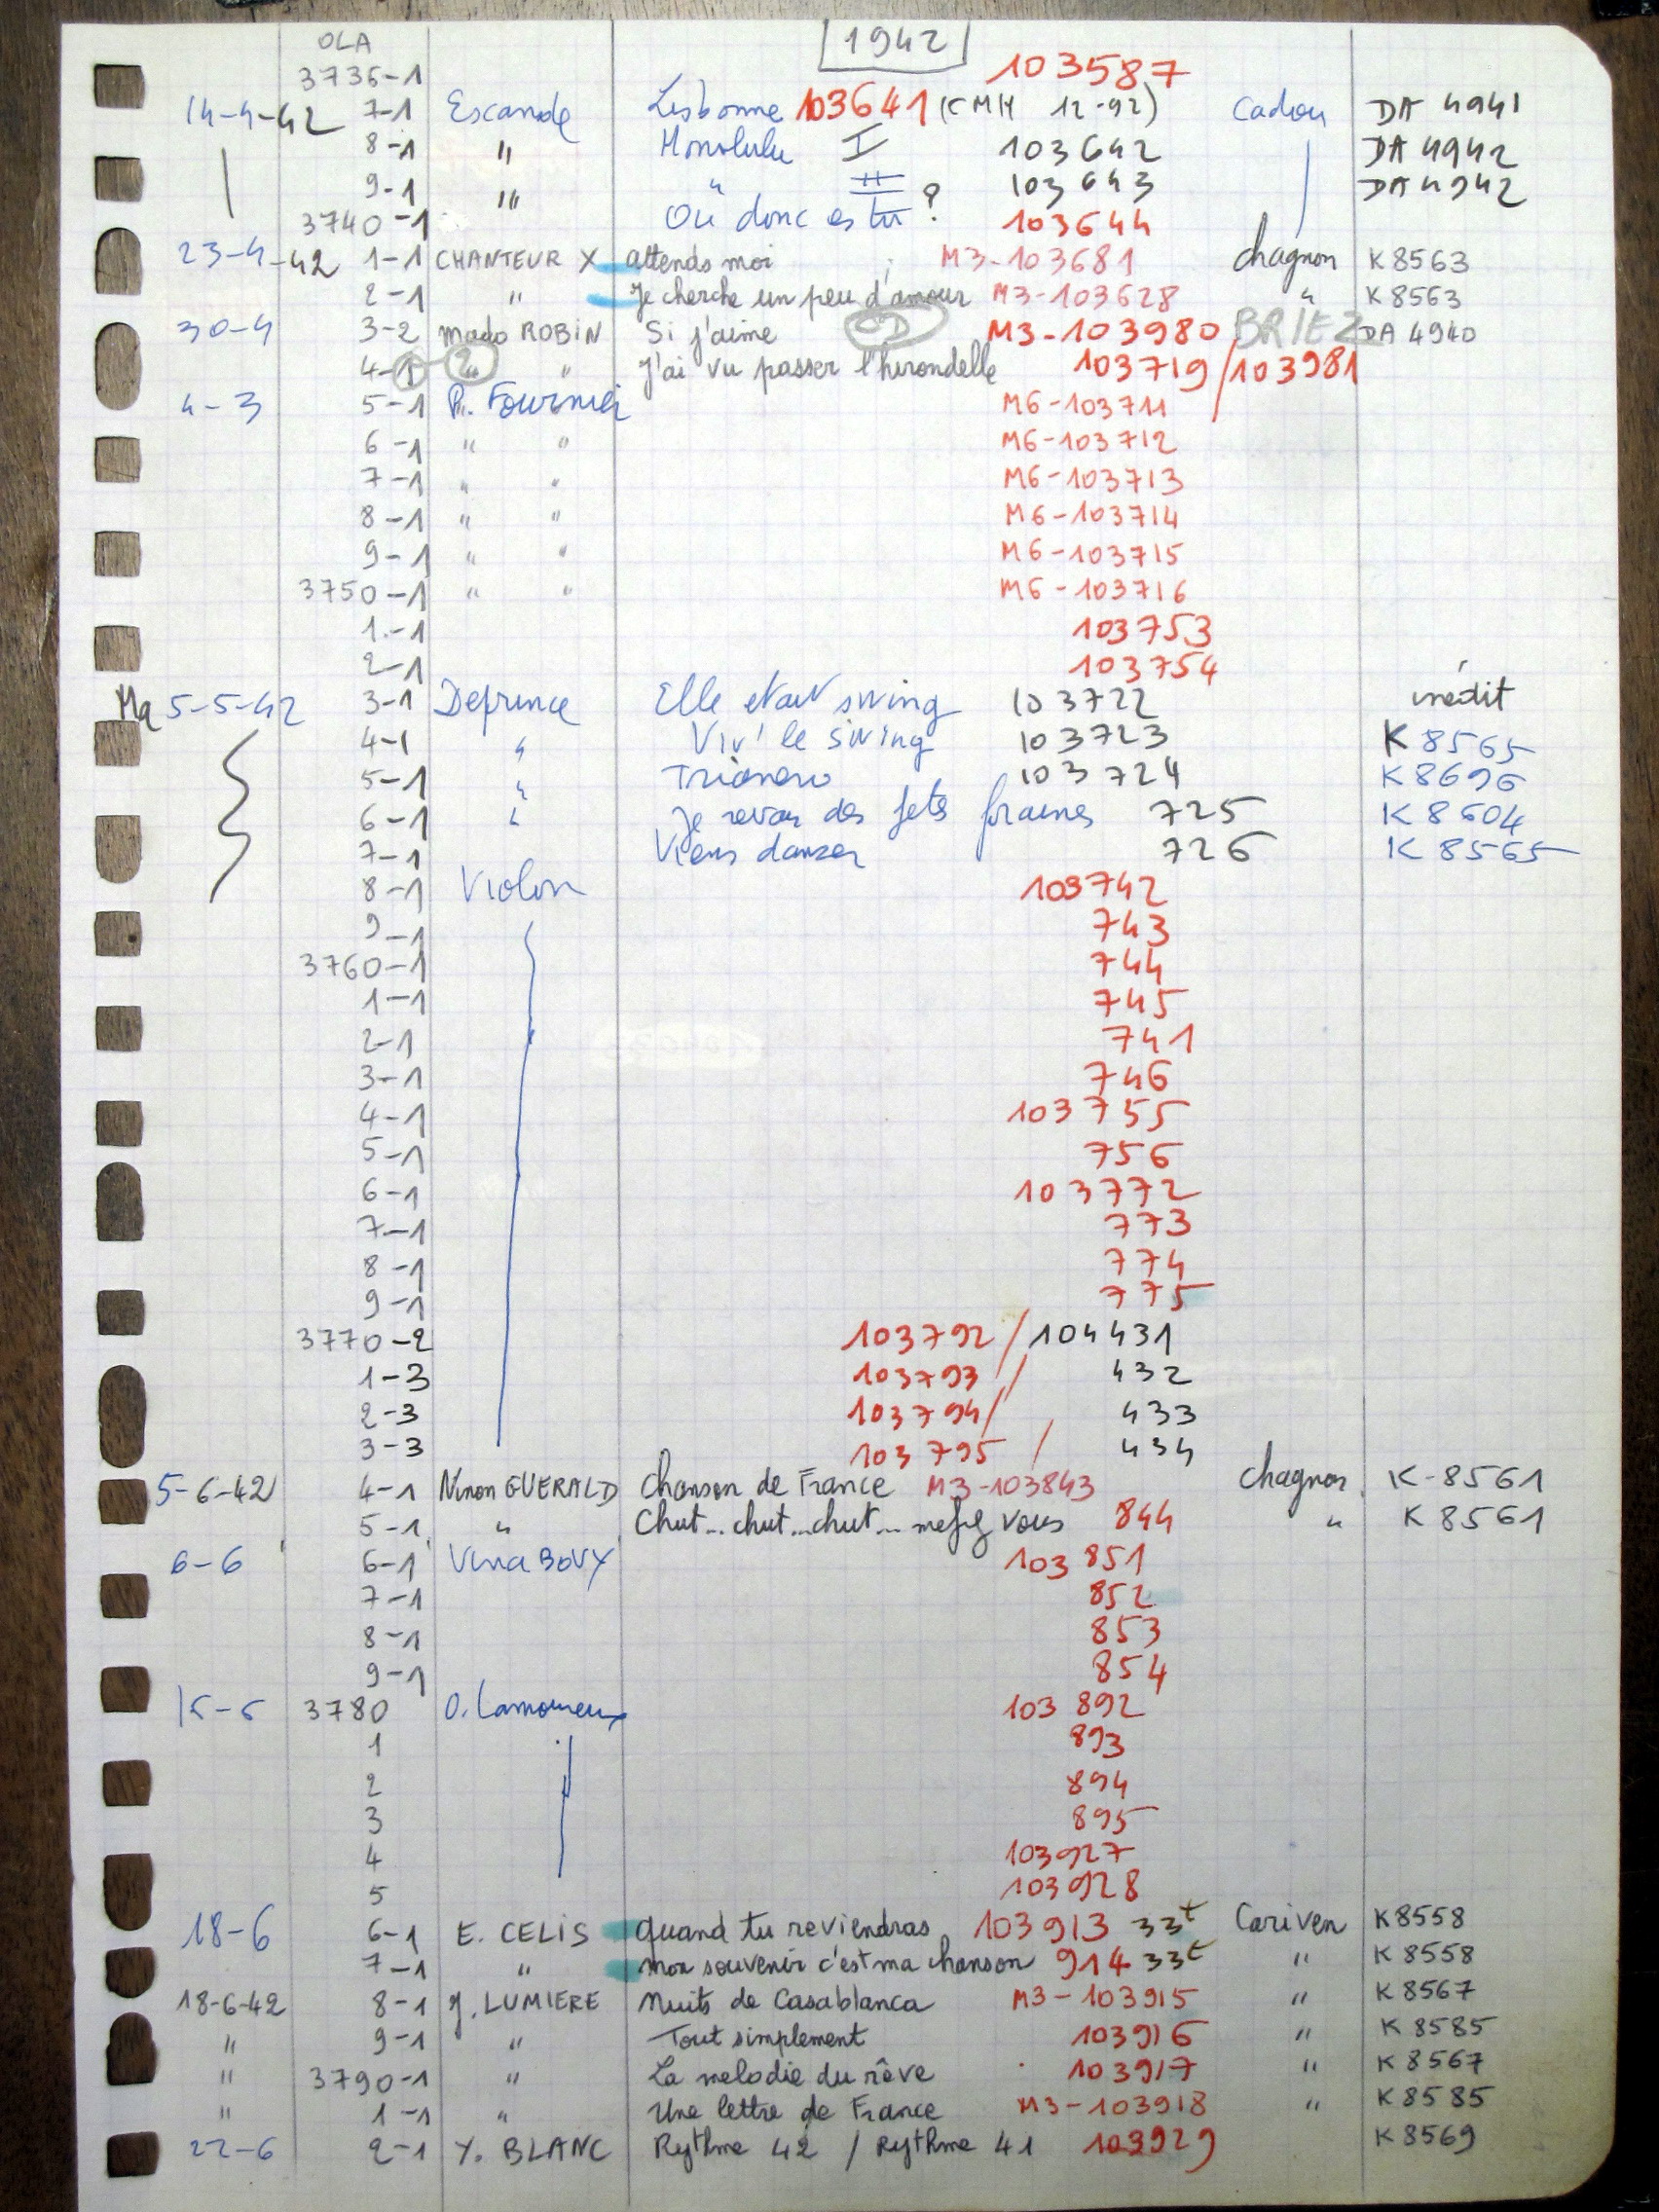 OLA 1942
3736-1 103587
14-4-42 7-1 Escande Lisbonne 103641 (KMH 12-92) Cadou DA 4941
8-1 " Honolulu I 103642 DA 4942
9-1 " " II 103643 DA 4942
3740-1 Où donc es tu ? 103644
23-4-42 1-1 CHANTEUR X attends moi M3-103681 Chagnon K 8563
2-1 " Je cherche un peu d'amour M3-103628 " K 8563
30-4 3-2 Mado ROBIN Si j'aime M3-103980 BRIEZ DA 4940
4-1 2 " J'ai vu passer l'hirondelle 103719/103981
4-3 5-1 P. Fournier M6-103711
6-1 " " M6-103712
7-1 " " M6-103713
8-1 " " M6-103714
9-1 " " M6-103715
3750-1 " " M6-103716
1-1 103753
2-1 103754
Ma 5-5-42 3-1 Deprince Elle etait swing 103722 inédit
4-1 " Viv' le swing 103723 K 8565
5-1 " Trianero 103724 K 8696
6-1 " Je revais des fetes foraines 725 K 8604
7-1 Viens danser 726 K 8565
8-1 Violon 103742
9-1 743
3760-1 744
1-1 745
2-1 741
3-1 746
4-1 103755
5-1 756
6-1 103772
7-1 773
8-1 774
9-1 775
3770-2 103792 / 104431
1-3 103793 / 432
2-3 103794 / 433
3-3 103795 / 434
5-6-42 4-1 Ninon GUERALD Chanson de France M3-103843 Chagnon K-8561
5-1 " Chut...chut...chut... mefiez vous 844 " K 8561
6-6 6-1 Vina BOVY 103851
7-1 852
8-1 853
9-1 854
15-6 3780 O. Lamoureux 103892
1 893
2 894
3 895
4 103927
5 103928
18-6 6-1 E. CELIS quand tu reviendras 103913 33t Cariven K 8558
7-1 " mon souvenir c'est ma chanson 914 33t " K 8558
18-6-42 8-1 J. LUMIERE Nuits de Casablanca M3-103915 " K 8567
" 9-1 " Tout simplement 103916 " K 8585
" 3790-1 " La melodie du rêve 103917 " K 8567
" 1-1 " Une lettre de France M3-103918 " K 8585
22-6 2-1 Y. BLANC Rythme 42 / Rythme 41 103929 K 8569